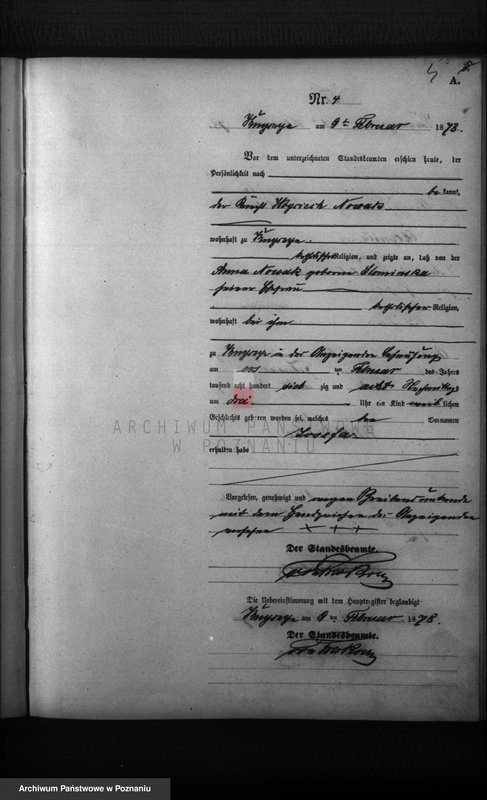 A.
Nr. 4
am 9ten Februar 1878.
Vor dem unterzeichneten Standesbeamten erschien heute, der
Persönlichkeit nach
be kannt,
der Knecht Wojciech Nowak
wohnhaft zu
katholischer Religion, und zeigte an, daß von der
Anna Nowak geborene Slominska
seiner Ehefrau
katholischer Religion,
wohnhaft bei ihm
zu in der Anzeigenden Behausung
am ten Februar des Jahres
tausend acht hundert sieb zig und acht Nachmittags
um drei Uhr ein Kind weiblichen
Geschlechts geboren worden sei, welches den Vornamen
Josefa
erhalten habe
Vorgelesen, genehmigt und wegen Schreibensunkunde
mit dem Handzeichen des Anzeigenden
versehen + + +
Der Standesbeamte.
Die Uebereinstimmung mit dem Hauptregister beglaubigt
am 9 ten Februar 1878.
Der Standesbeamte.
ARCHIWUM PAŃSTWOWE
W POZNANIU
Archiwum Państwowe w Poznaniu